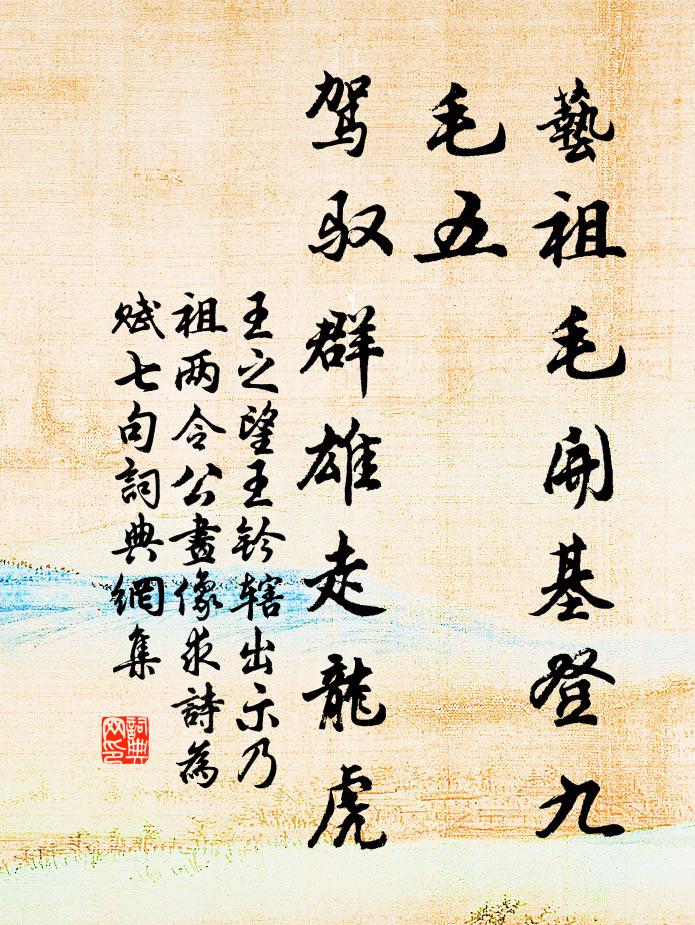 藝祖毛開基登九
毛五
驾驭群雄走龍虎
王之望王鈐辖出示乃
祖两令公畫像求詩為
赋七句詞典網集
詞典
网印